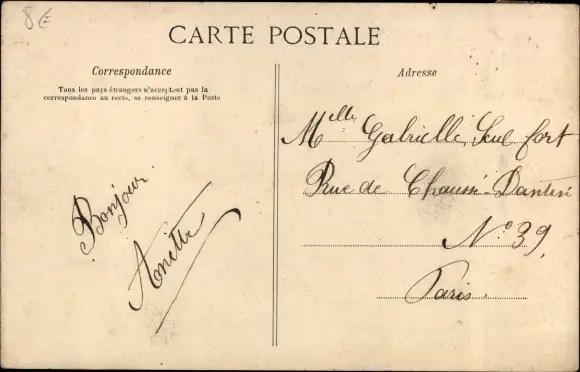 8€
CARTE POSTALE
Correspondance
Tous les pays étrangers n'acceptent pas la
correspondance au recto, se renseigner à la Poste
Bonjour
Anitta
Adresse
Melle Gabrielle, Seul fort
Rue de Chaussé-Dantin
No 39,
Paris.